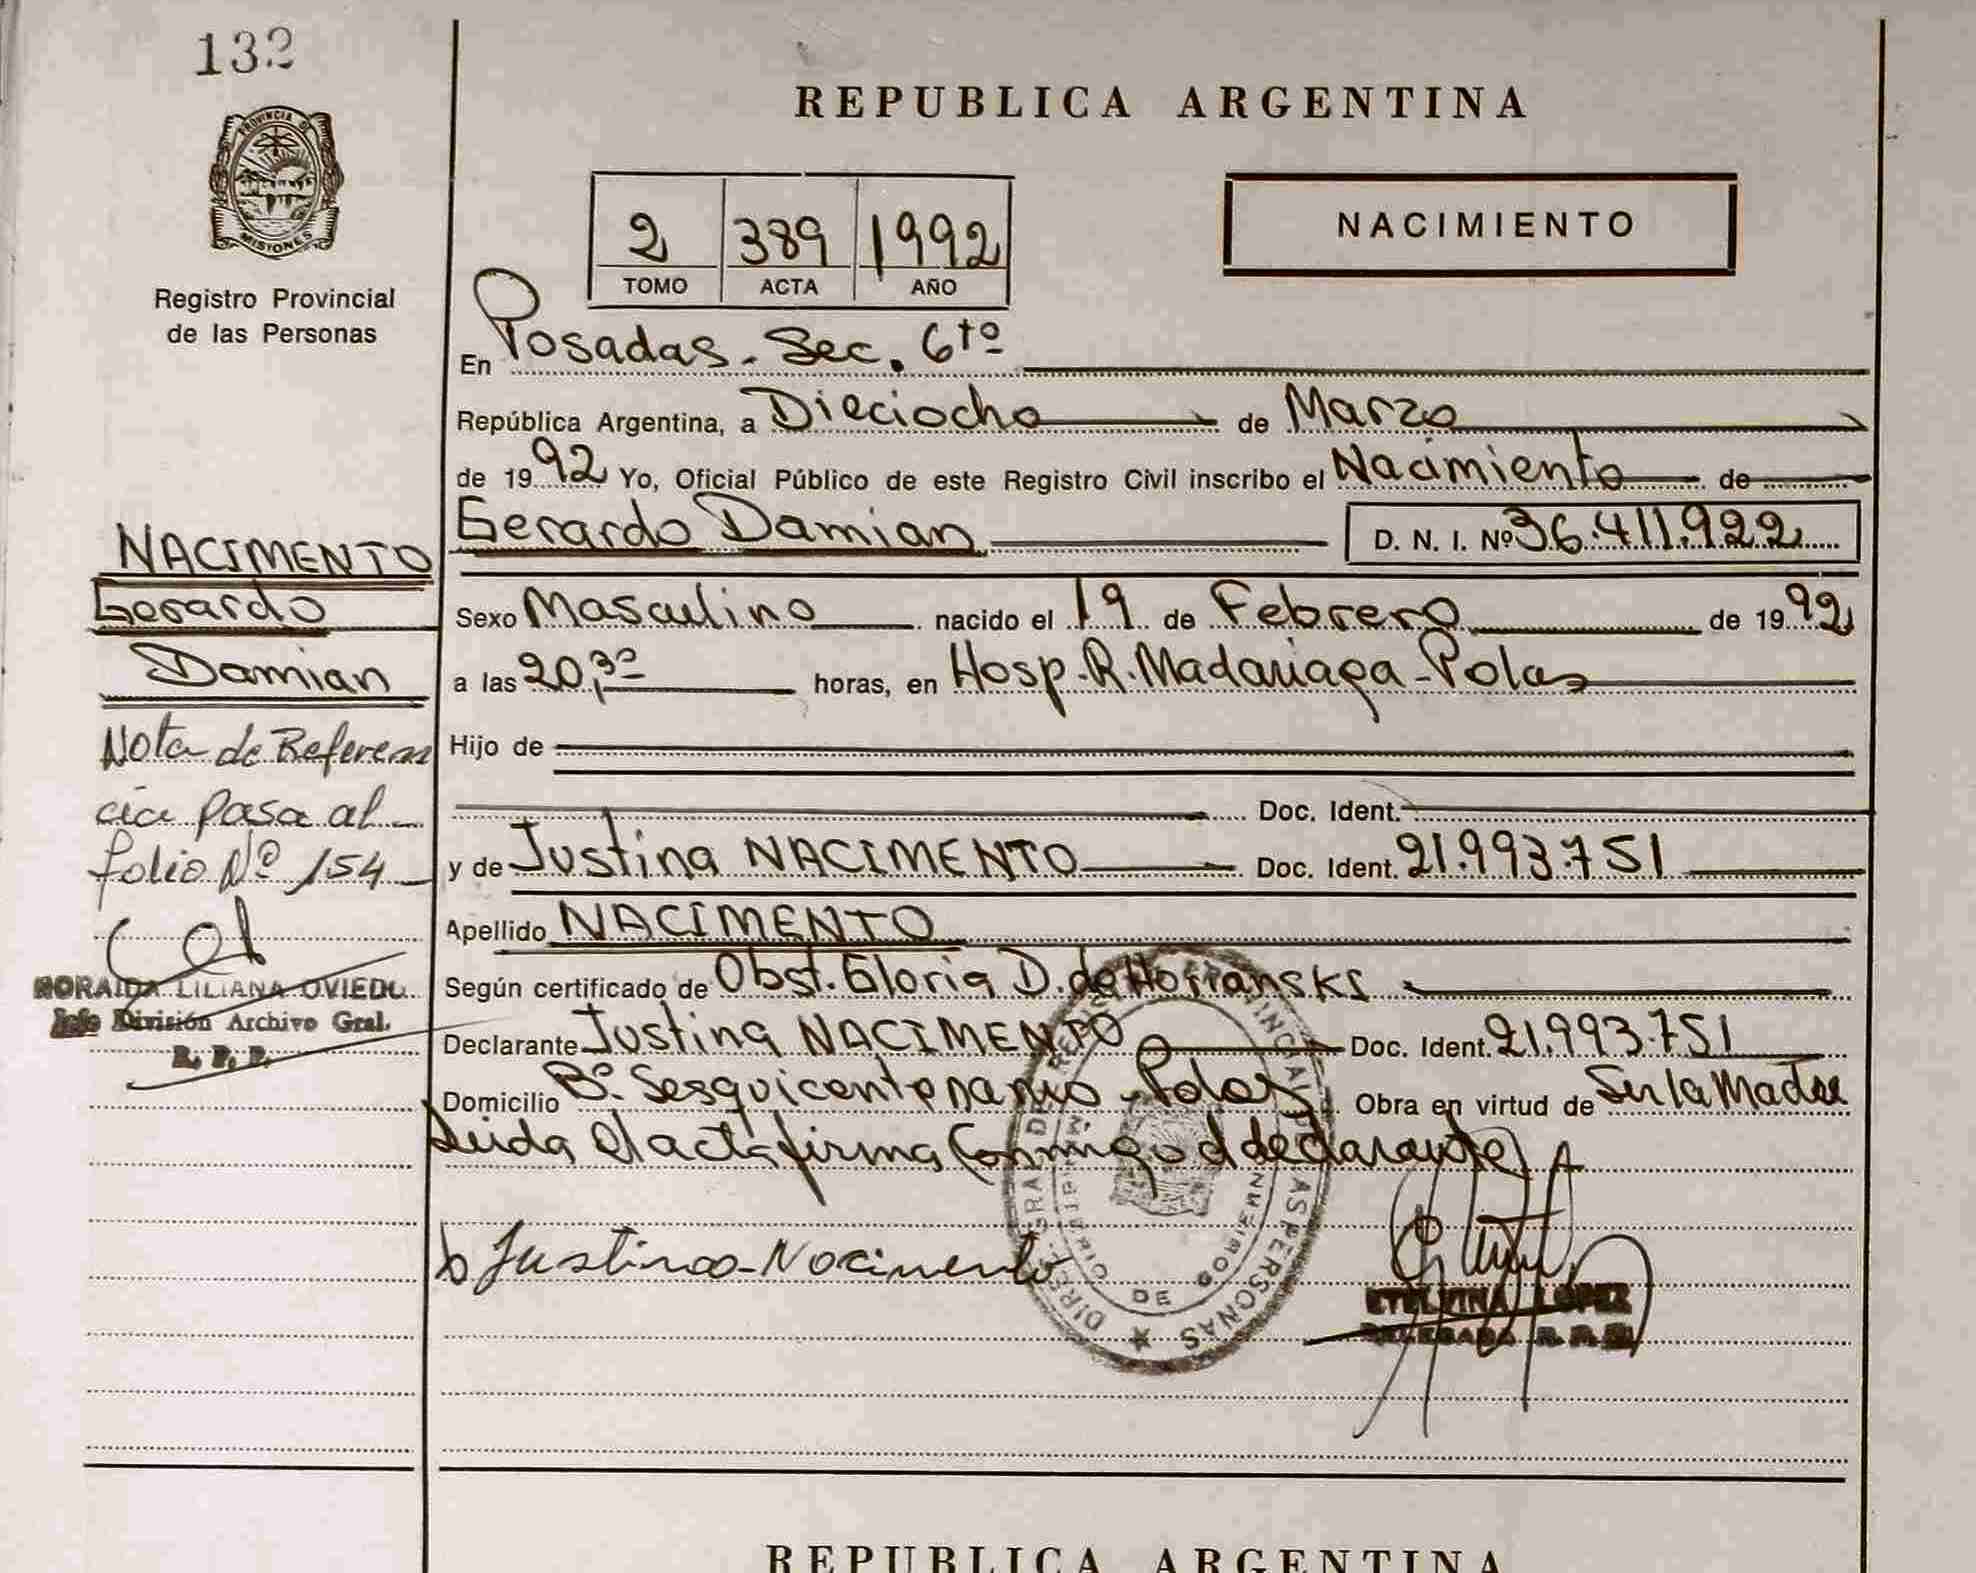 132
PROVINCIA DE
MISIONES
Registro Provincial
de las Personas
REPUBLICA ARGENTINA
2 389 1992
TOMO ACTA AÑO
NACIMIENTO
En Posadas - Sec. 6ta
República Argentina, a Dieciocho de Marzo
de 1992 Yo, Oficial Público de este Registro Civil inscribo el Nacimiento de
Gerardo Damian D. N. I. Nº 36.411.922
Sexo Masculino nacido el 19 de Febrero de 1992
a las 20,30 horas, en Hosp. R. Madariaga - Pdas
Hijo de
Doc. Ident.
y de Justina NACIMENTO Doc. Ident. 21.993.751
Apellido NACIMENTO
Según certificado de Obst. Gloria D. de
Declarante Justina NACIMENTO Doc. Ident. 21.993.751
Domicilio Bº Sesquicentenario - Pdas Obra en virtud de Ser la Madre
Leida el acta firma conmigo el declarante
Justina Nacimento
ETELVINA LOPEZ
DELEGADA R. P. P.
NACIMENTO
Gerardo
Damian
Nota de Referen
cia pasa al
folio Nº 154
NORAIDA LILIANA OVIEDO
Jefe División Archivo Gral.
R. P. P.
DE LAS PERSONAS
REPUBLICA ARGENTINA